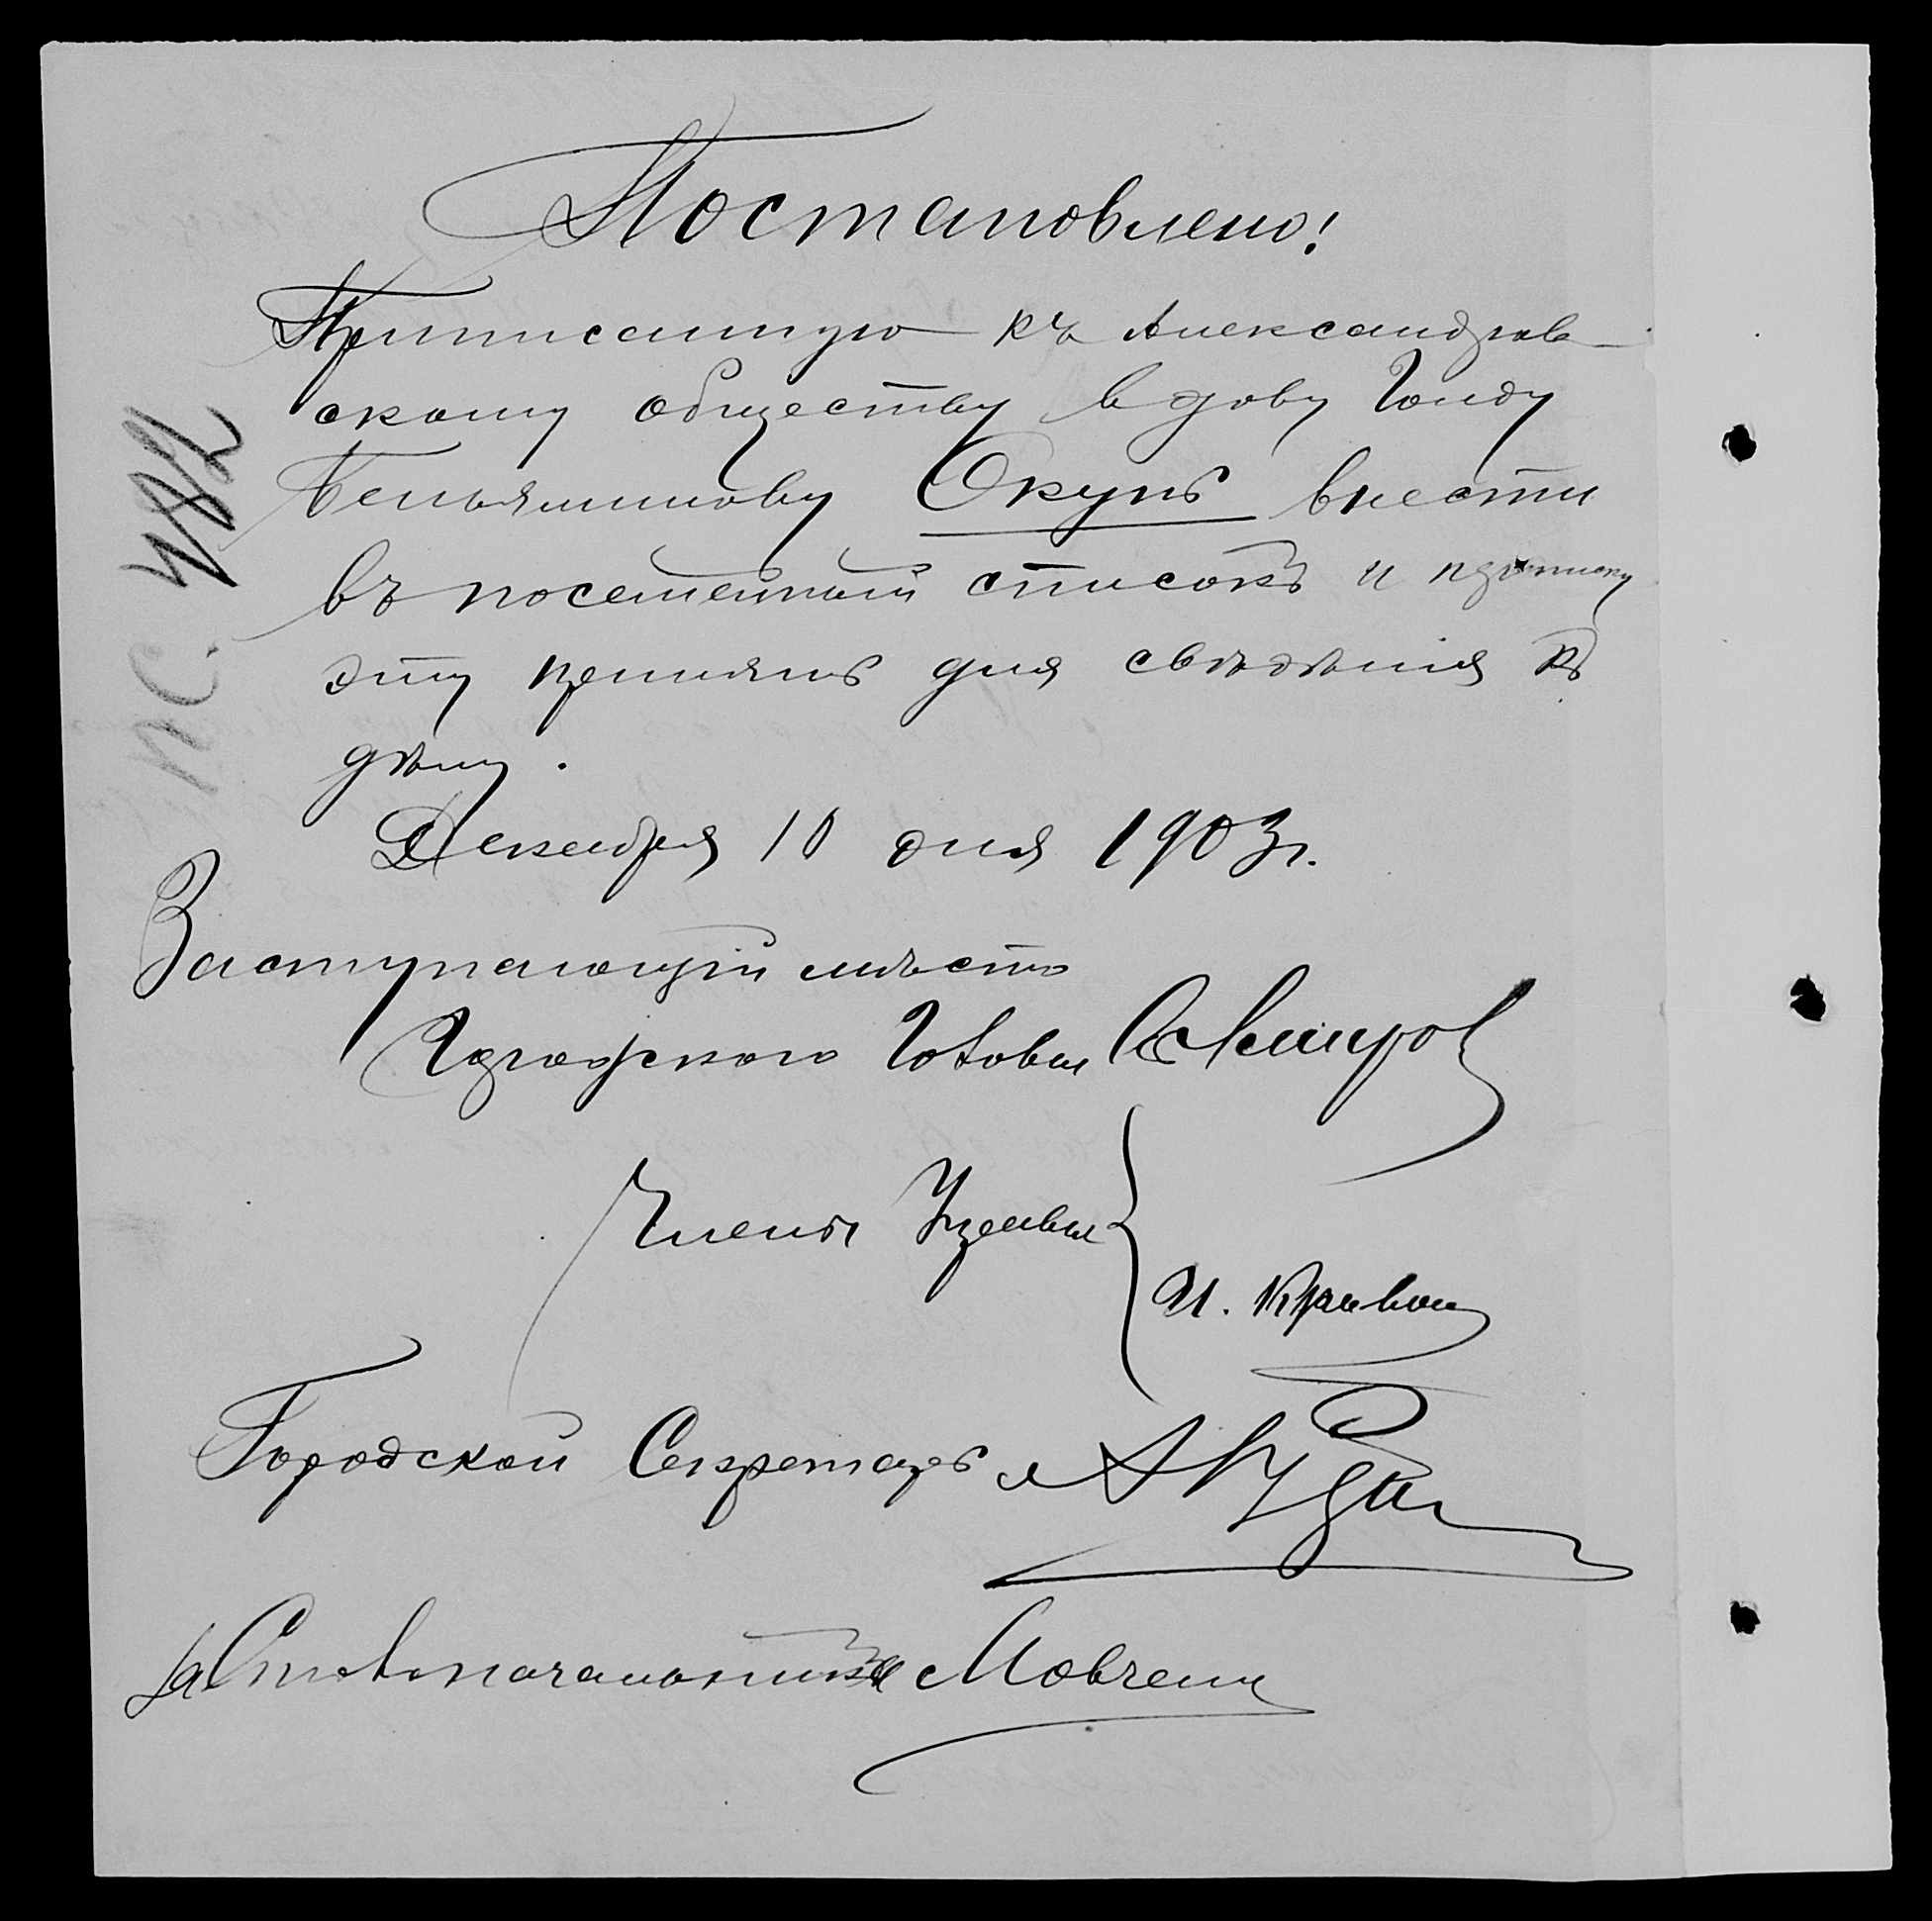 Постановлено:
Приписанную къ Александров-
скому обществу вдову Гольду
Беньяминову Окунь внести
въ посемейный списокъ и приписку
эту принять для свѣдѣнія къ
дѣлу.
Декабря 10 дня 1903 г.
Заступающій мѣсто
Городского Головы
Члены Управы
И. Кривошей
Городской Секретарь
За Столоначальника Мовчанъ
ПС. 482